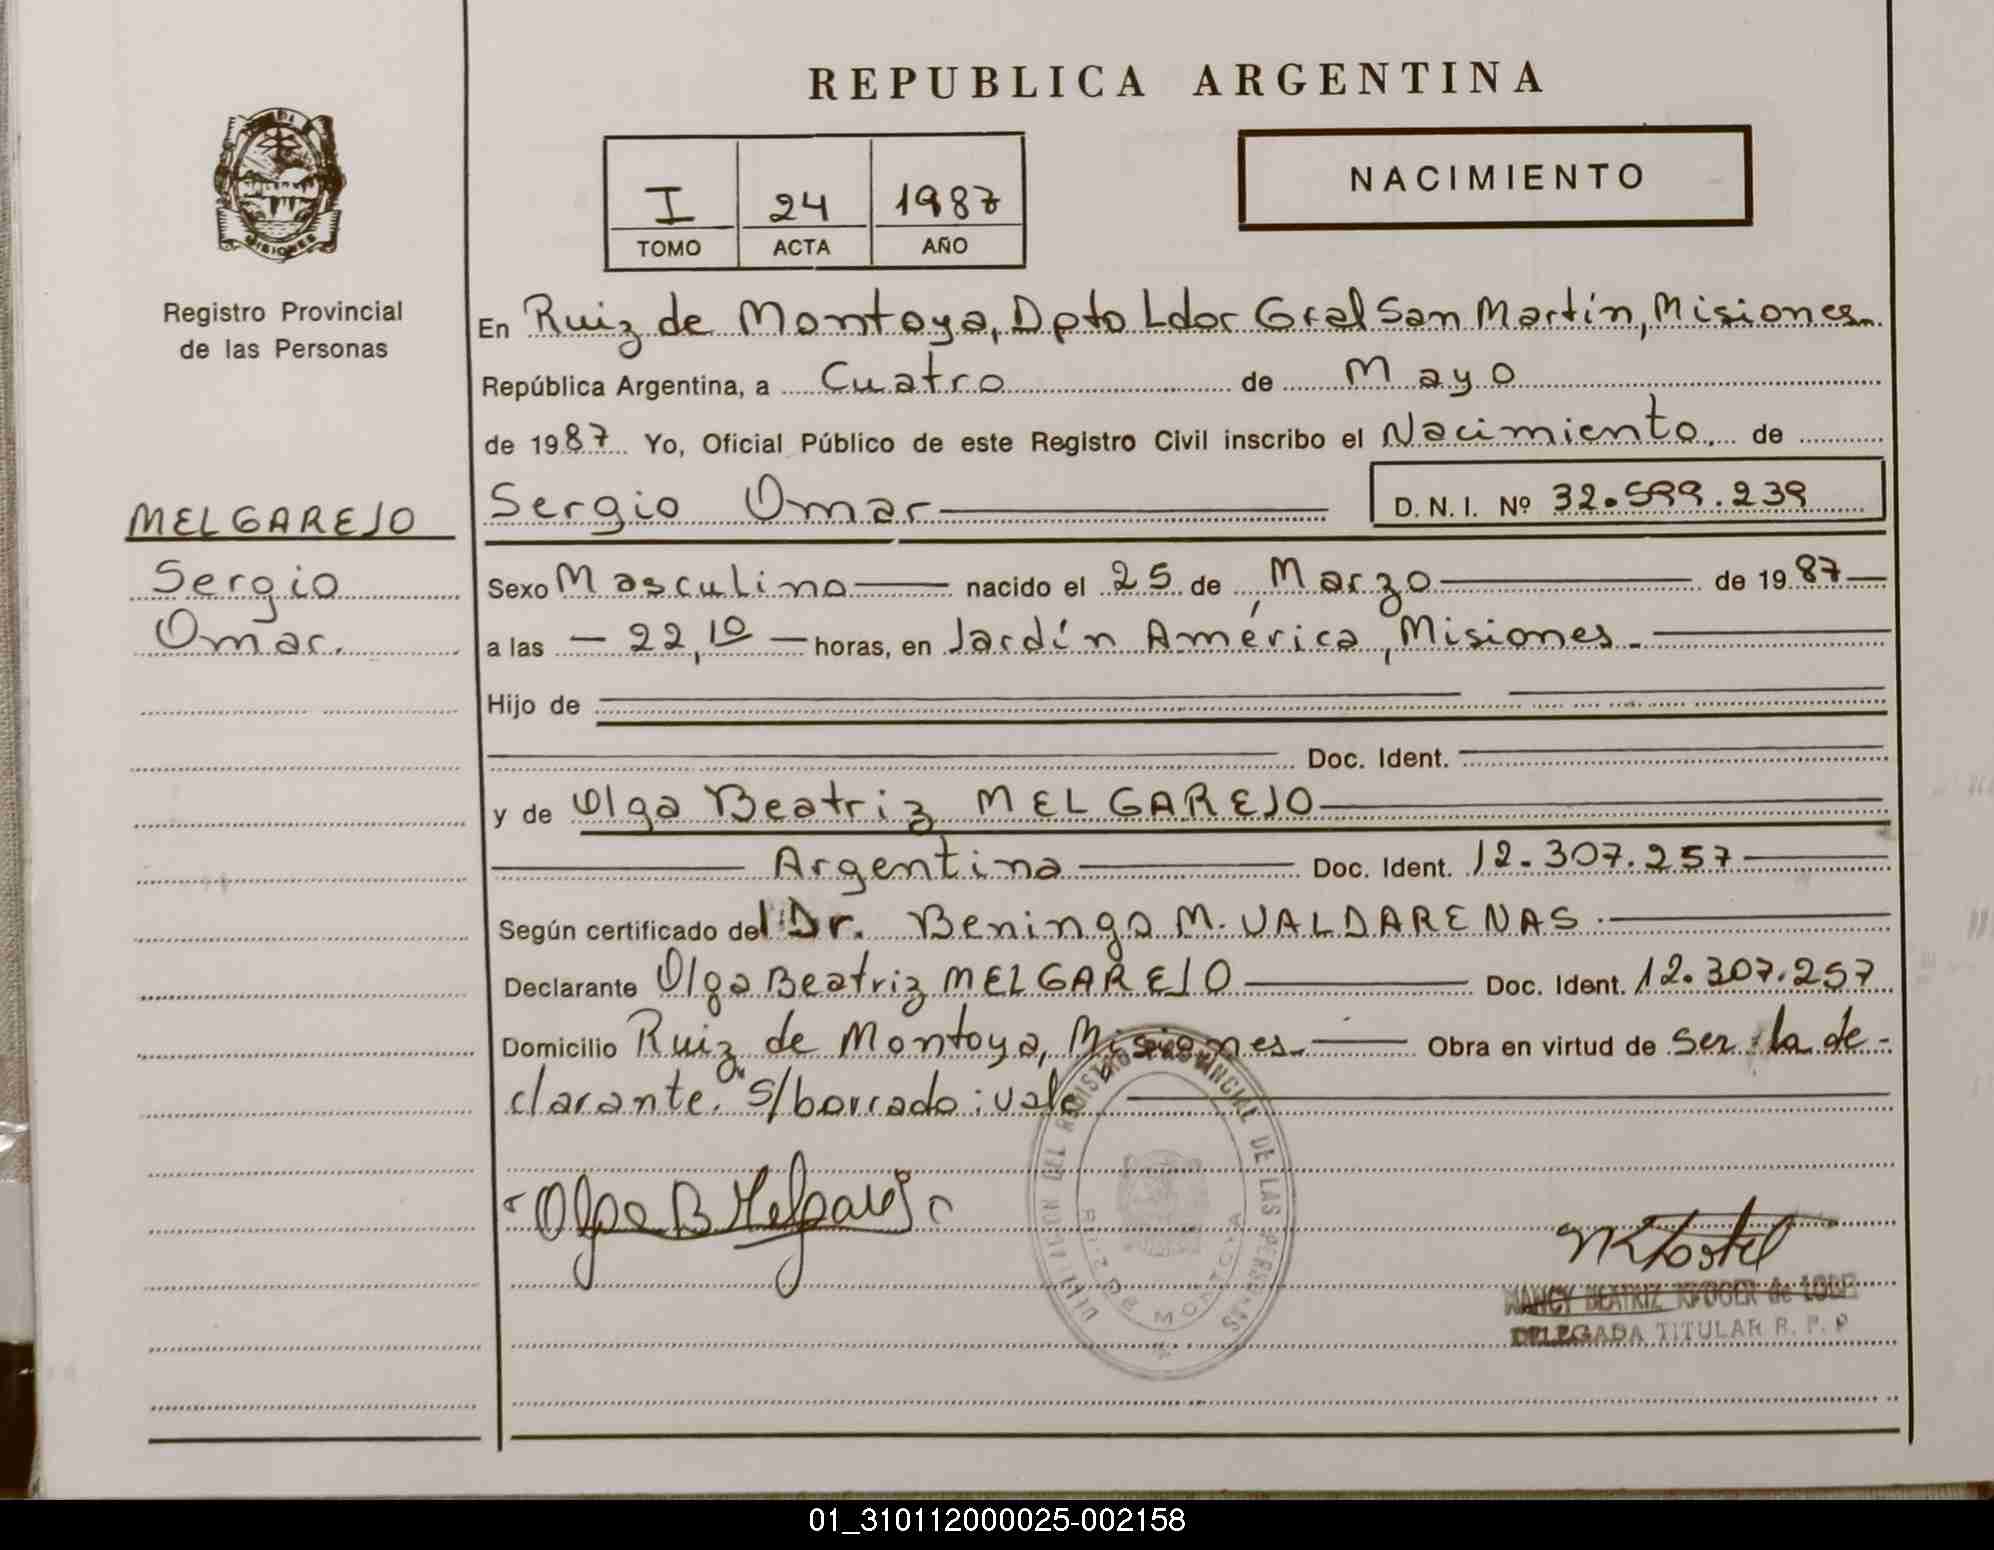 REPUBLICA ARGENTINA
MISIONES
Registro Provincial
de las Personas
I 24 1987
TOMO ACTA AÑO
NACIMIENTO
En Ruiz de Montoya, Dpto Ldor Gral San Martín, Misiones
República Argentina, a Cuatro de Mayo
de 1987 Yo, Oficial Público de este Registro Civil inscribo el Nacimiento de
MELGAREJO
Sergio
Omar.
Sergio Omar D. N. I. Nº 32.599.239
Sexo Masculino nacido el 25 de Marzo de 1987
a las 22,10 horas, en Jardín América, Misiones.
Hijo de
Doc. Ident.
y de Olga Beatriz MELGAREJO
Argentina Doc. Ident. 12.307.257
Según certificado del Dr. Beningo M. VALDARENAS.
Declarante Olga Beatriz MELGAREJO Doc. Ident. 12.307.257
Domicilio Ruiz de Montoya, Misiones. Obra en virtud de ser la de-
clarante. "s/borrado: vale
Olga B Melgarejo
DEL REGISTRO PROVINCIAL DE LAS PERSONAS
RUIZ DE MONTOYA
NANCY BEATRIZ KRUGER de
DELEGADA TITULAR R. P. P
01_310112000025-002158